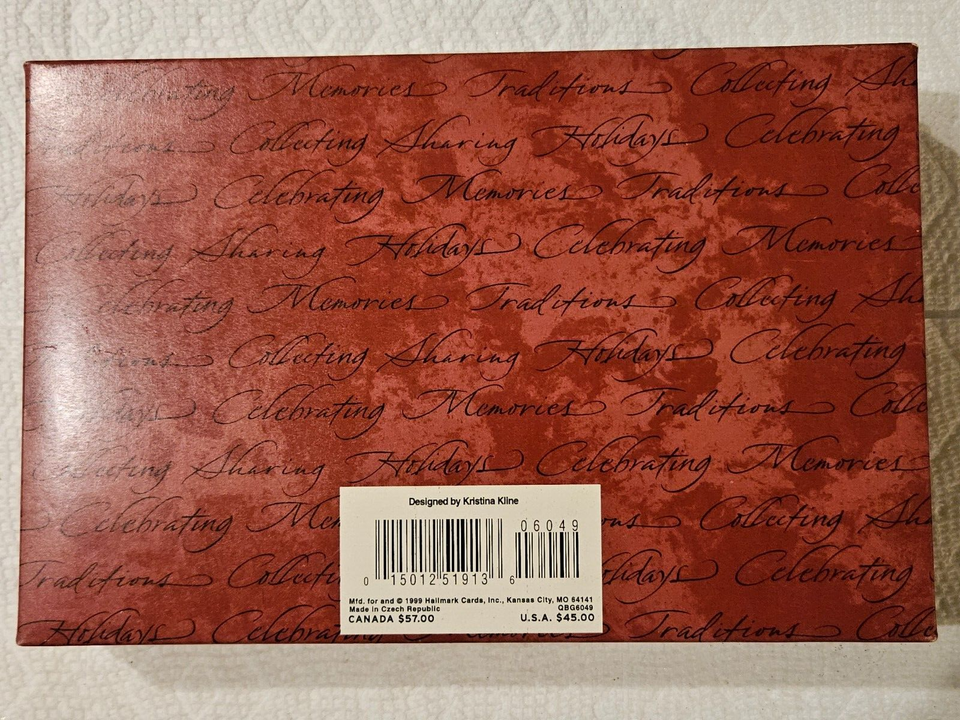 Celebrating Memories Traditions Collecting Sha
Traditions Collecting Sharing Holidays Celebrating
Holidays Celebrating Memories Traditions Colle
Collecting Sharing Holidays Celebrating Memories
Celebrating Memories Traditions Collecting Sha
Traditions Collecting Sharing Holidays Celebrating
Holidays Celebrating Memories Traditions Colle
Collecting Sharing Holidays Celebrating Memories
Celebrating Mem ous Collecting Sha
Traditions Collecti Holidays Celebrating
Holidays Celebrating Memories Traditions Colle
Designed by Kristina Kline
06049
0 15012 51913 6
Mfd. for and © 1999 Hallmark Cards, Inc., Kansas City, MO 64141
Made in Czech Republic QBG6049
CANADA $57.00 U.S.A. $45.00